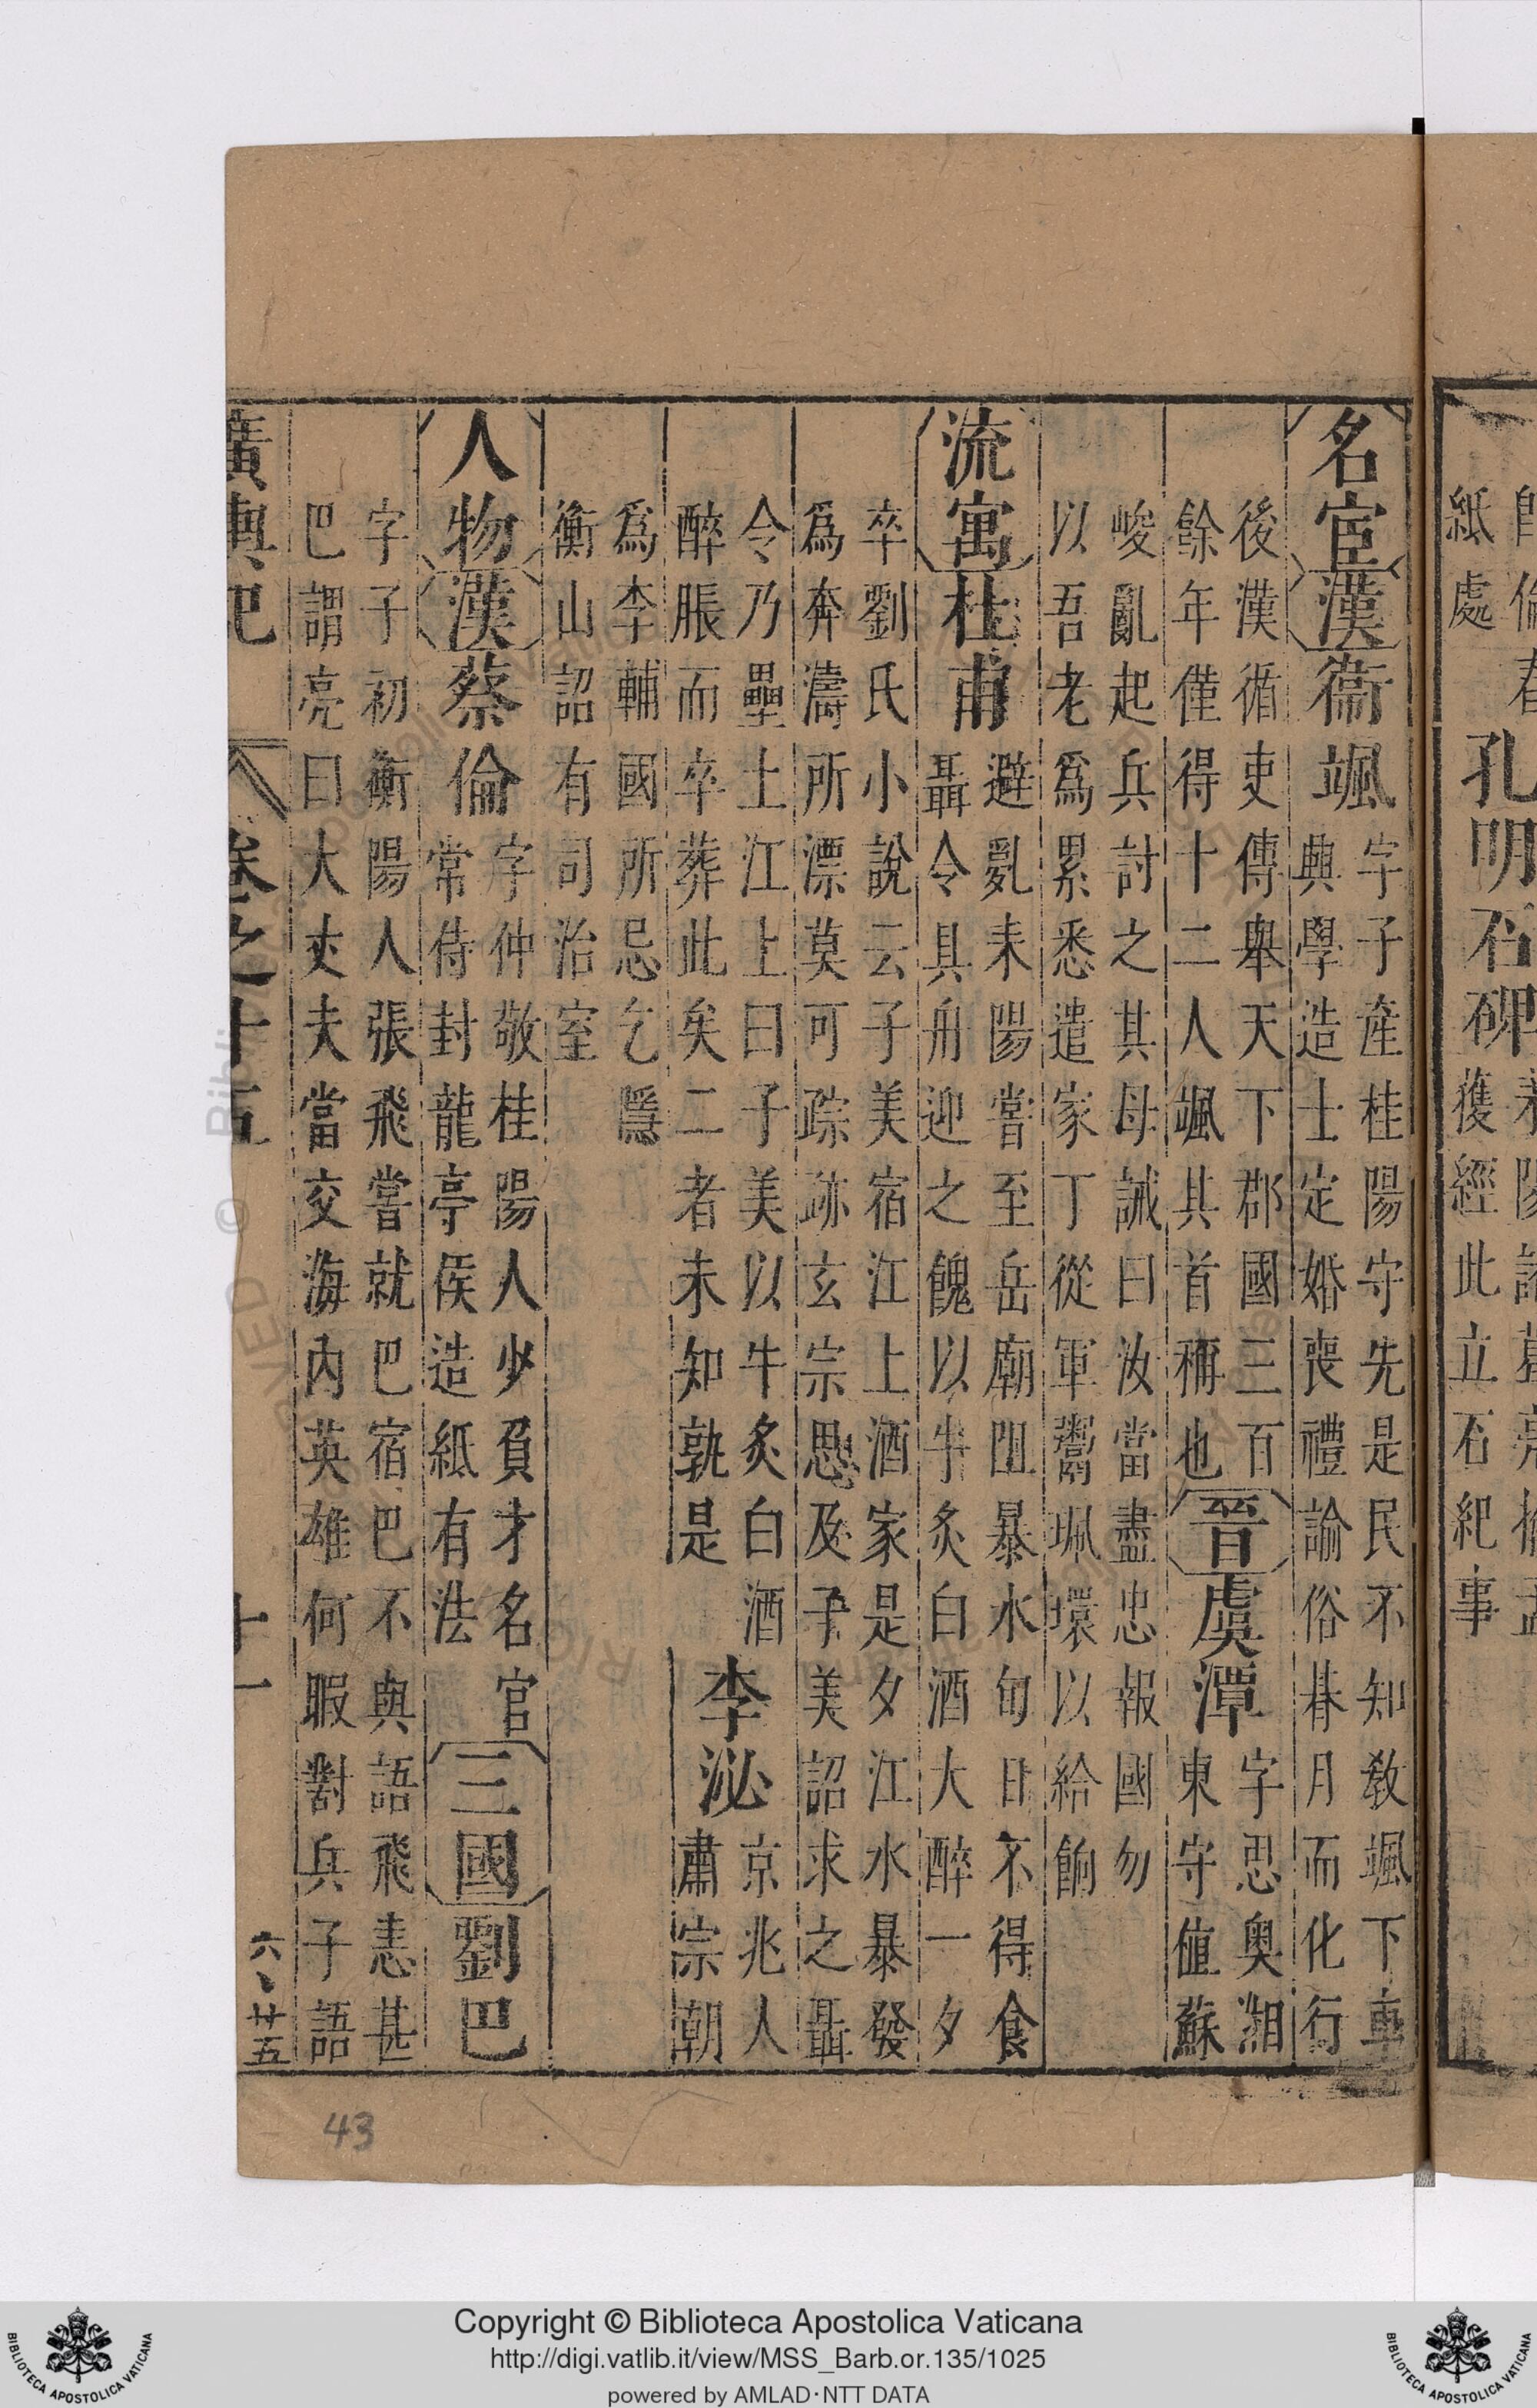 紙處
孔明石碑
獲經此立石紀事
名宦漢衞颯
字子產桂陽守先是民不知教颯下車
典學造士定婚喪禮諭俗朞月而化行
後漢循吏傳舉天下郡國三百
餘年僅得十二人颯其首稱也
晉虞潭
字思奥湘
東守値蘇
峻亂起兵討之其母誡曰汝當盡忠報國勿
以吾老爲累悉遣家丁從軍鬻珮環以給餉
流寓杜甫
避亂耒陽嘗至岳廟阻暴水旬日不得食
聶令具舟迎之餽以牛炙白酒大醉一夕
卒劉氏小說云子美宿江上酒家是夕江水暴發
爲奔濤所漂莫可踪跡玄宗思及子美詔求之聶
令乃壘土江上曰子美以牛炙白酒
醉脹而卒葬此矣二者未知孰是
李泌
京兆人
肅宗朝
爲李輔國所忌乞隱
衡山詔有司治室
人物漢蔡倫
字仲敬桂陽人少負才名官
常侍封龍亭侯造紙有法
三國劉巴
字子初衡陽人張飛嘗就巴宿巴不與語飛恚甚
巴謂亮曰大丈夫當交海內英雄何暇對兵子語
廣輿記 卷之十五 十一 六、廿五
43
Copyright © Biblioteca Apostolica Vaticana
http://digi.vatlib.it/view/MSS_Barb.or.135/1025
powered by AMLAD·NTT DATA
BIBLIOTECA APOSTOLICA VATICANA
BIBLIOTECA APOSTOLICA VATICANA